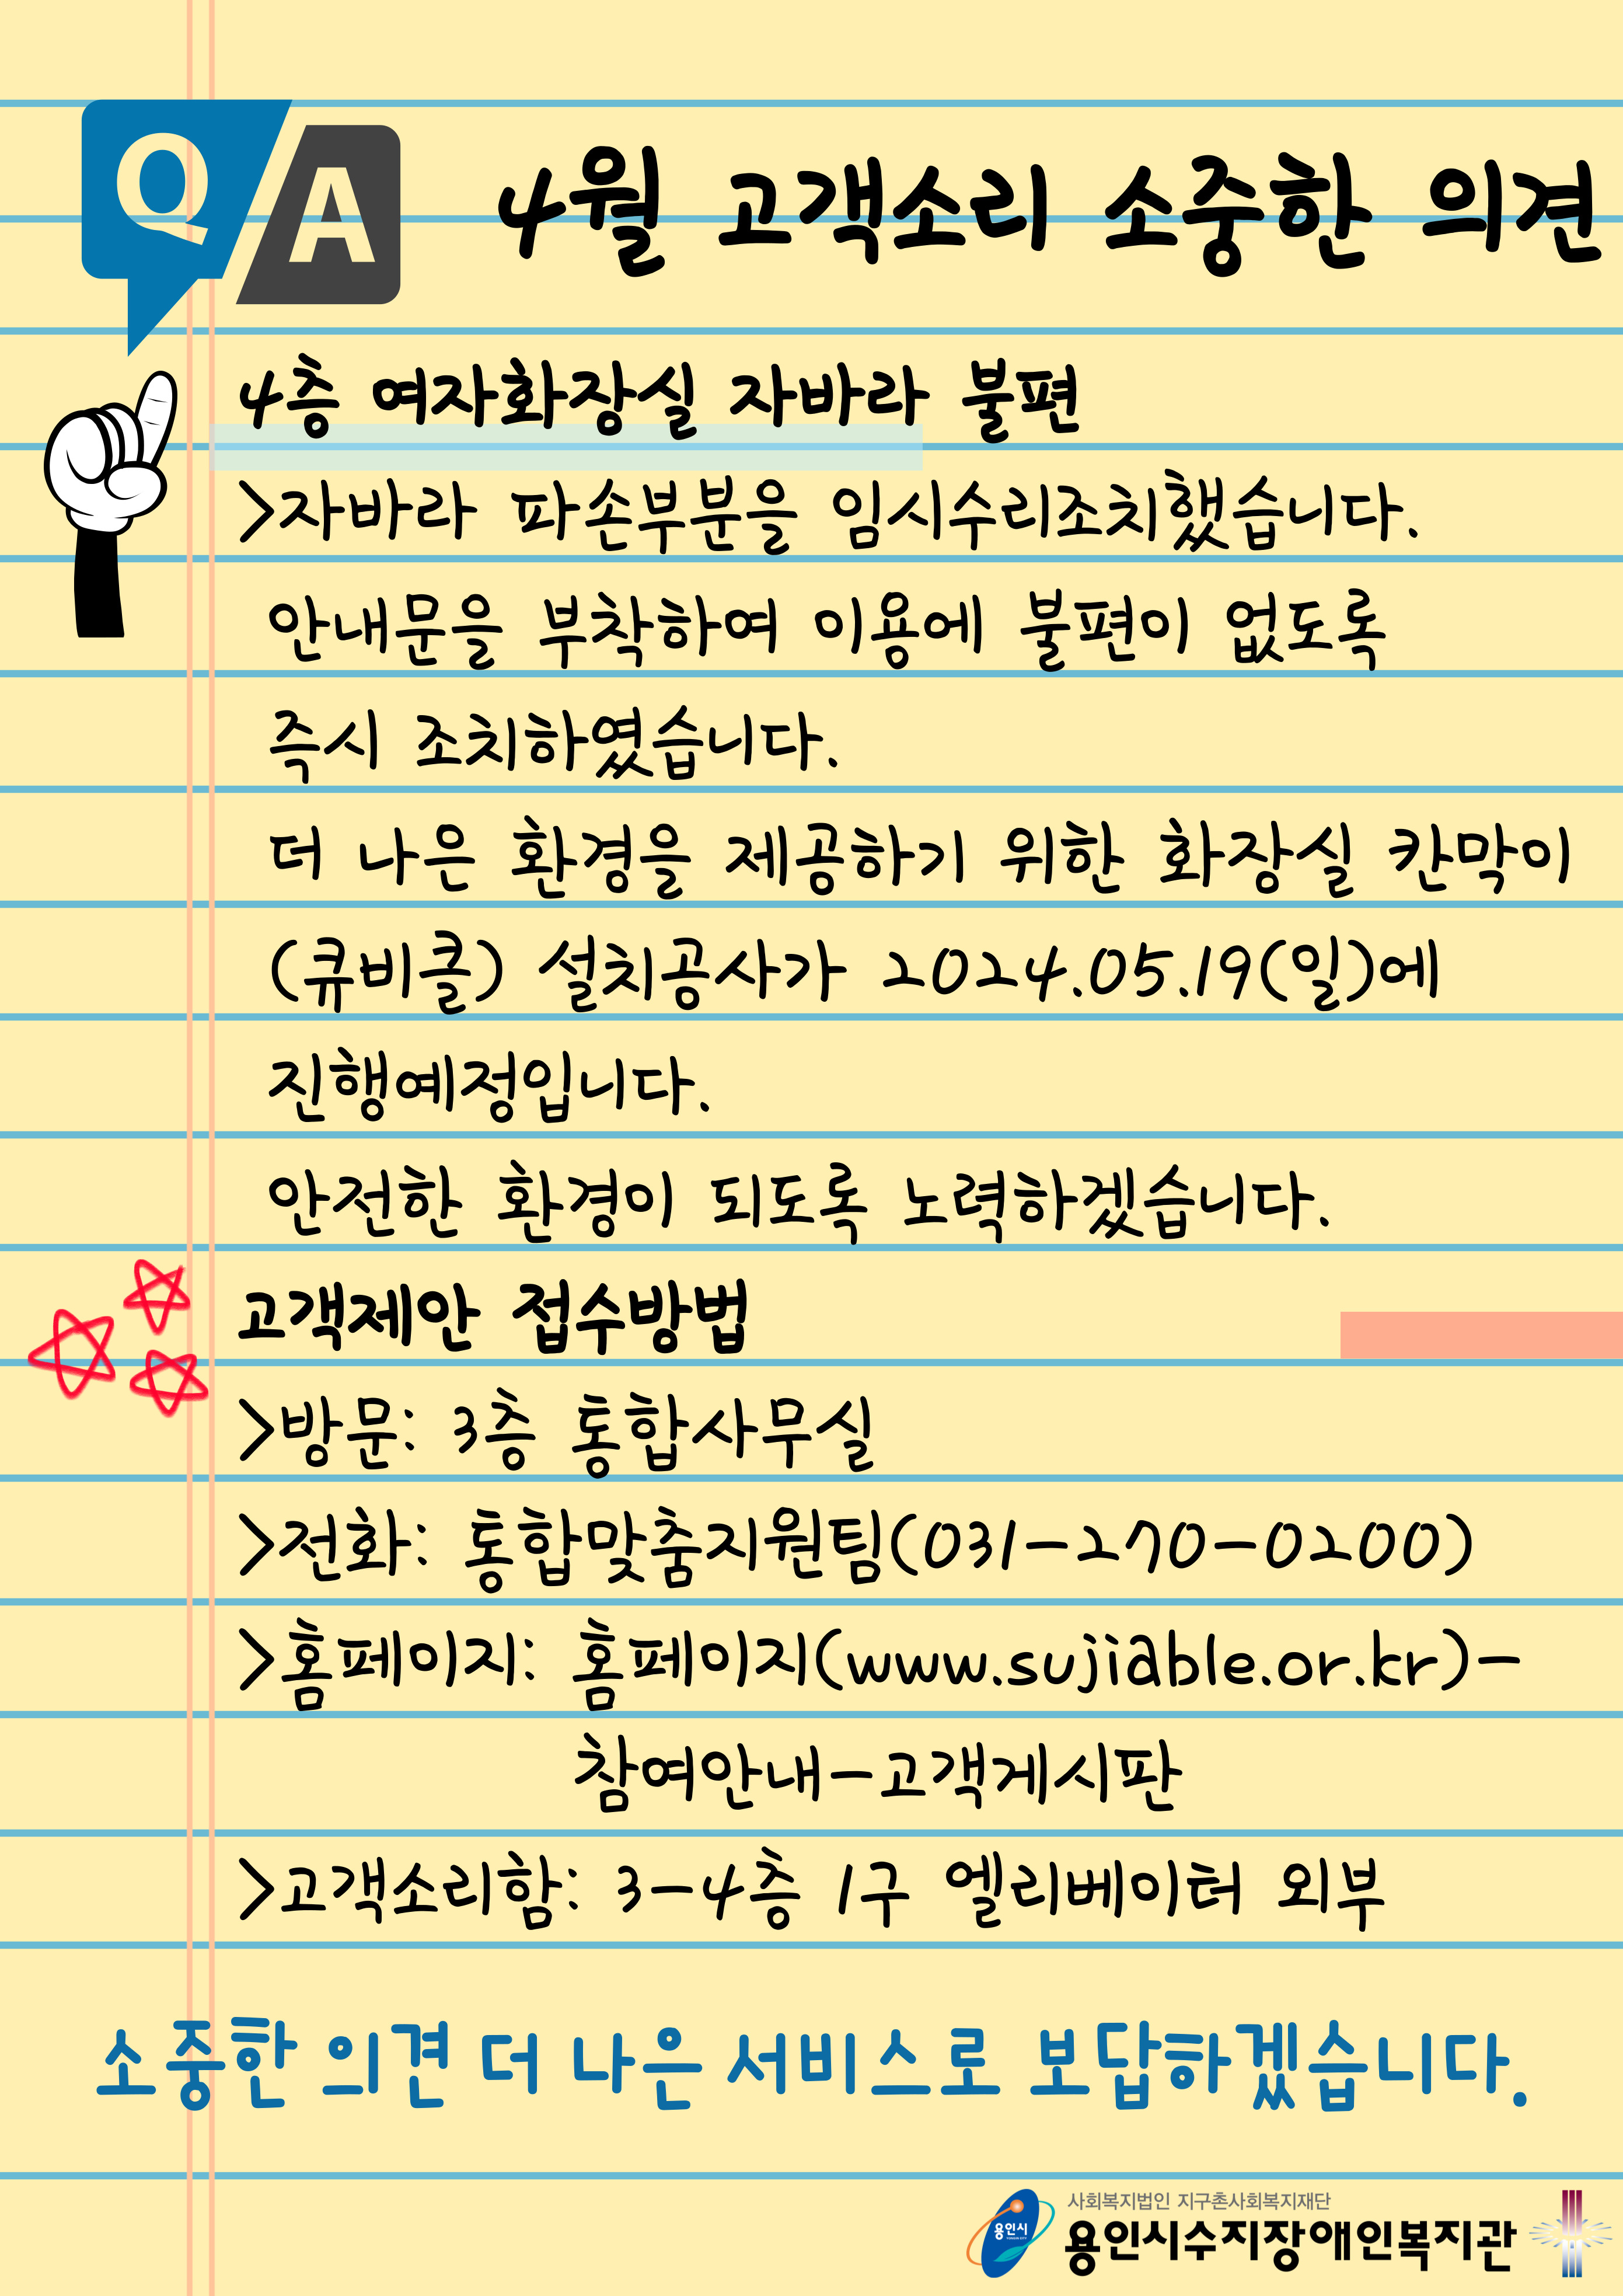 Q A
4월 고객소리 소중한 의견
4층 여자화장실 자바라 불편
>자바라 파손부분을 임시수리조치했습니다.
안내문을 부착하여 이용에 불편이 없도록
즉시 조치하였습니다.
더 나은 환경을 제공하기 위한 화장실 칸막이
(큐비클) 설치공사가 2024.05.19(일)에
진행예정입니다.
안전한 환경이 되도록 노력하겠습니다.
고객제안 접수방법
>방문: 3층 통합사무실
>전화: 통합맞춤지원팀(031-270-0200)
>홈페이지: 홈페이지(www.sujiable.or.kr)-
참여안내-고객게시판
>고객소리함: 3-4층 1구 엘리베이터 외부
소중한 의견 더 나은 서비스로 보답하겠습니다.
용인시
사회복지법인 지구촌사회복지재단
용인시수지장애인복지관